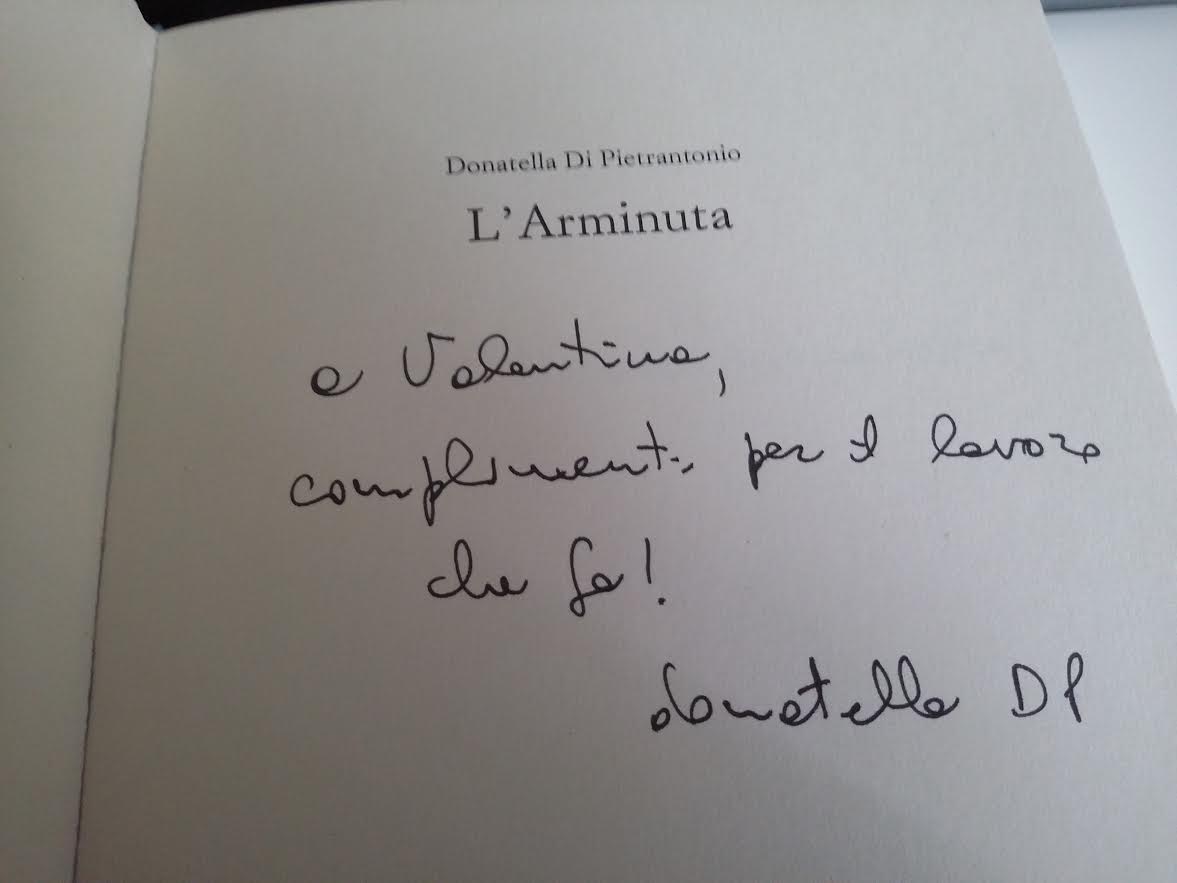 Donatella Di Pietrantonio
L'Arminuta
a Valentina,
complimenti per il lavoro
che fa!
donatella DP